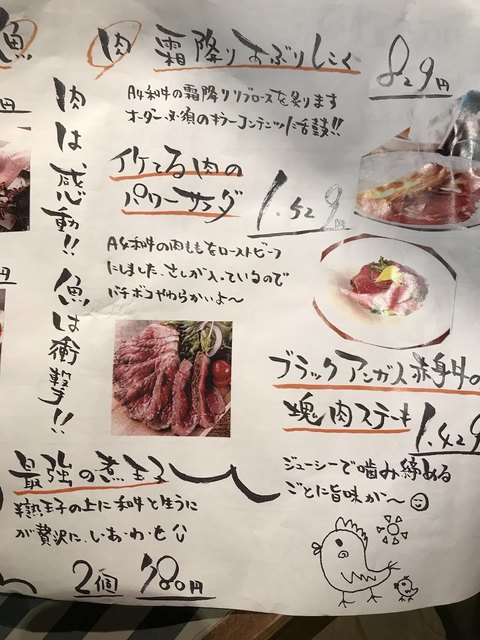 魚
肉 霜降りすぶりしこく
829円
A4和牛の霜降りリブロースを炙ります
オーダー必須のキラーコンテンツに舌鼓!!
肉は感動!! 魚は衝撃!!
イケてる肉の
パワーサラダ
1.429円
A4和牛の肉ももをローストビーフ
にしました、さしが入っているので
バチボコやわらかいよ〜
ブラックアンガス赤身牛の
塊肉ステーキ
1.429
ジューシーで噛み締める
ごとに旨味が〜
最強の煮玉子
半熟玉子の上に和牛と生うに
が贅沢に、しあ・わ・せ
2個 780円